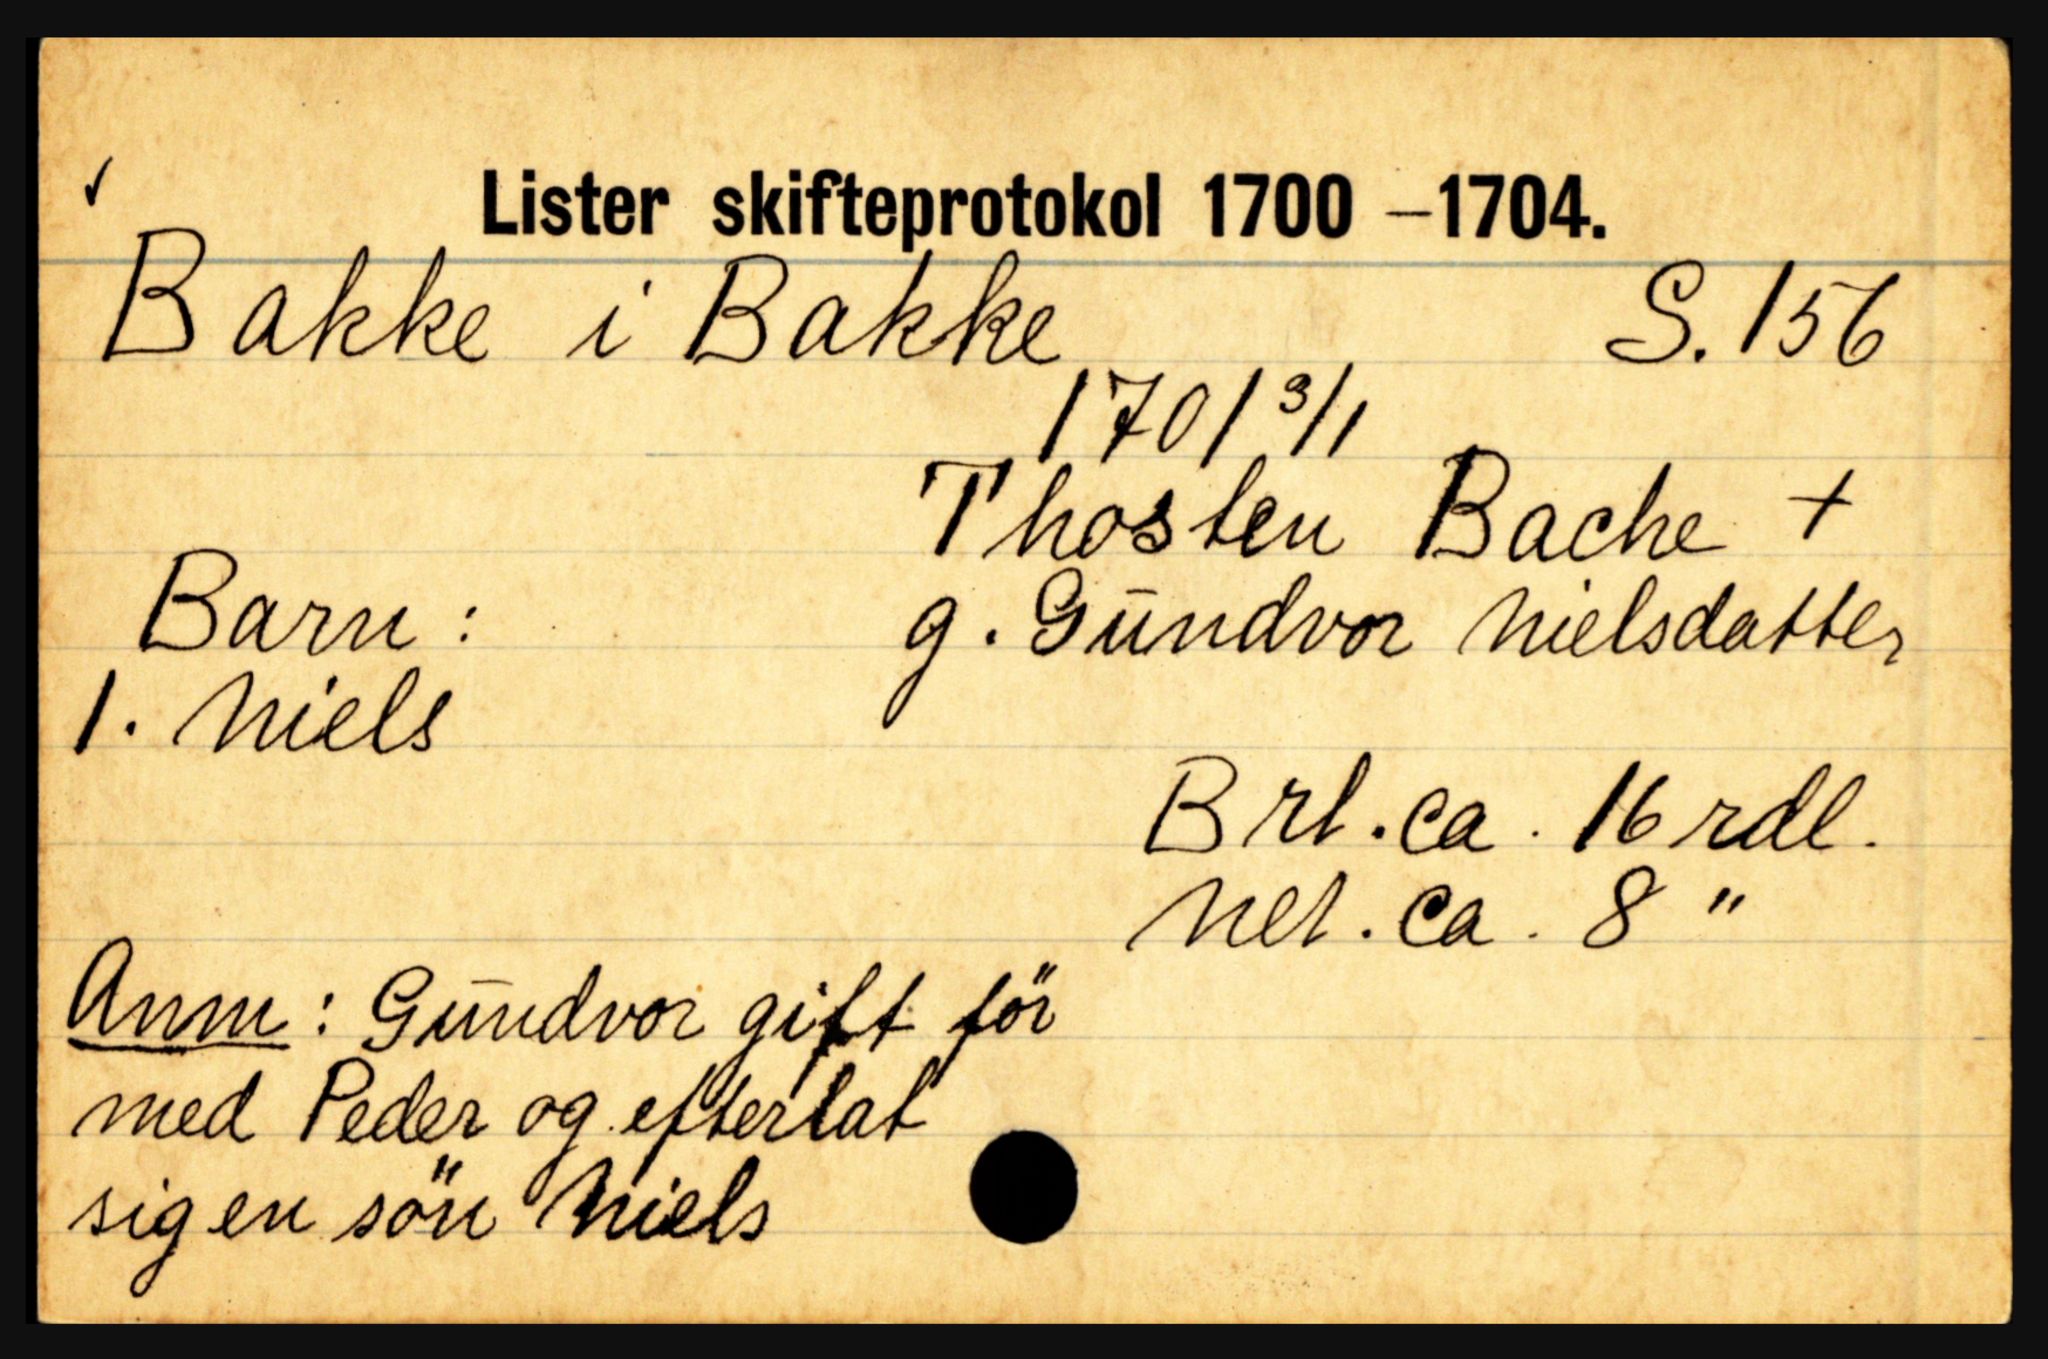 ✓ Lister skifteprotokol 1700 – 1704.
Bakke i Bakke S. 156
1701 3/1
Thosten Bache +
Barn: g. Gūndvor Nielsdatter
1. Niels
Brt. ca. 16 rdl.
Net. ca. 8 "
Anm: Gūndvor gift för
med Peder og efterlat
sig en sön Niels